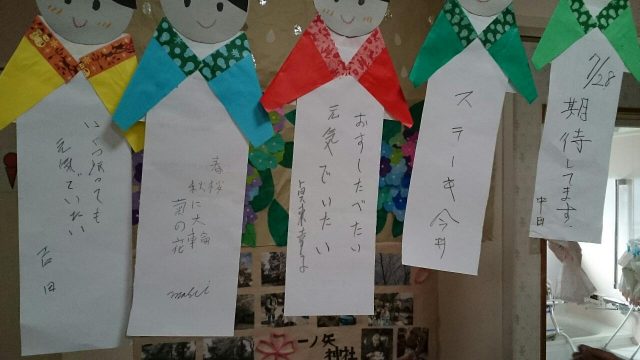 いくつになっても
元気でいたい
吉田
春桜
秋に大輪
菊の花
masui
おすしたべたい
元気でいたい
ステーキ 今井
7/28
期待してます。
中田
一ノ矢
神社